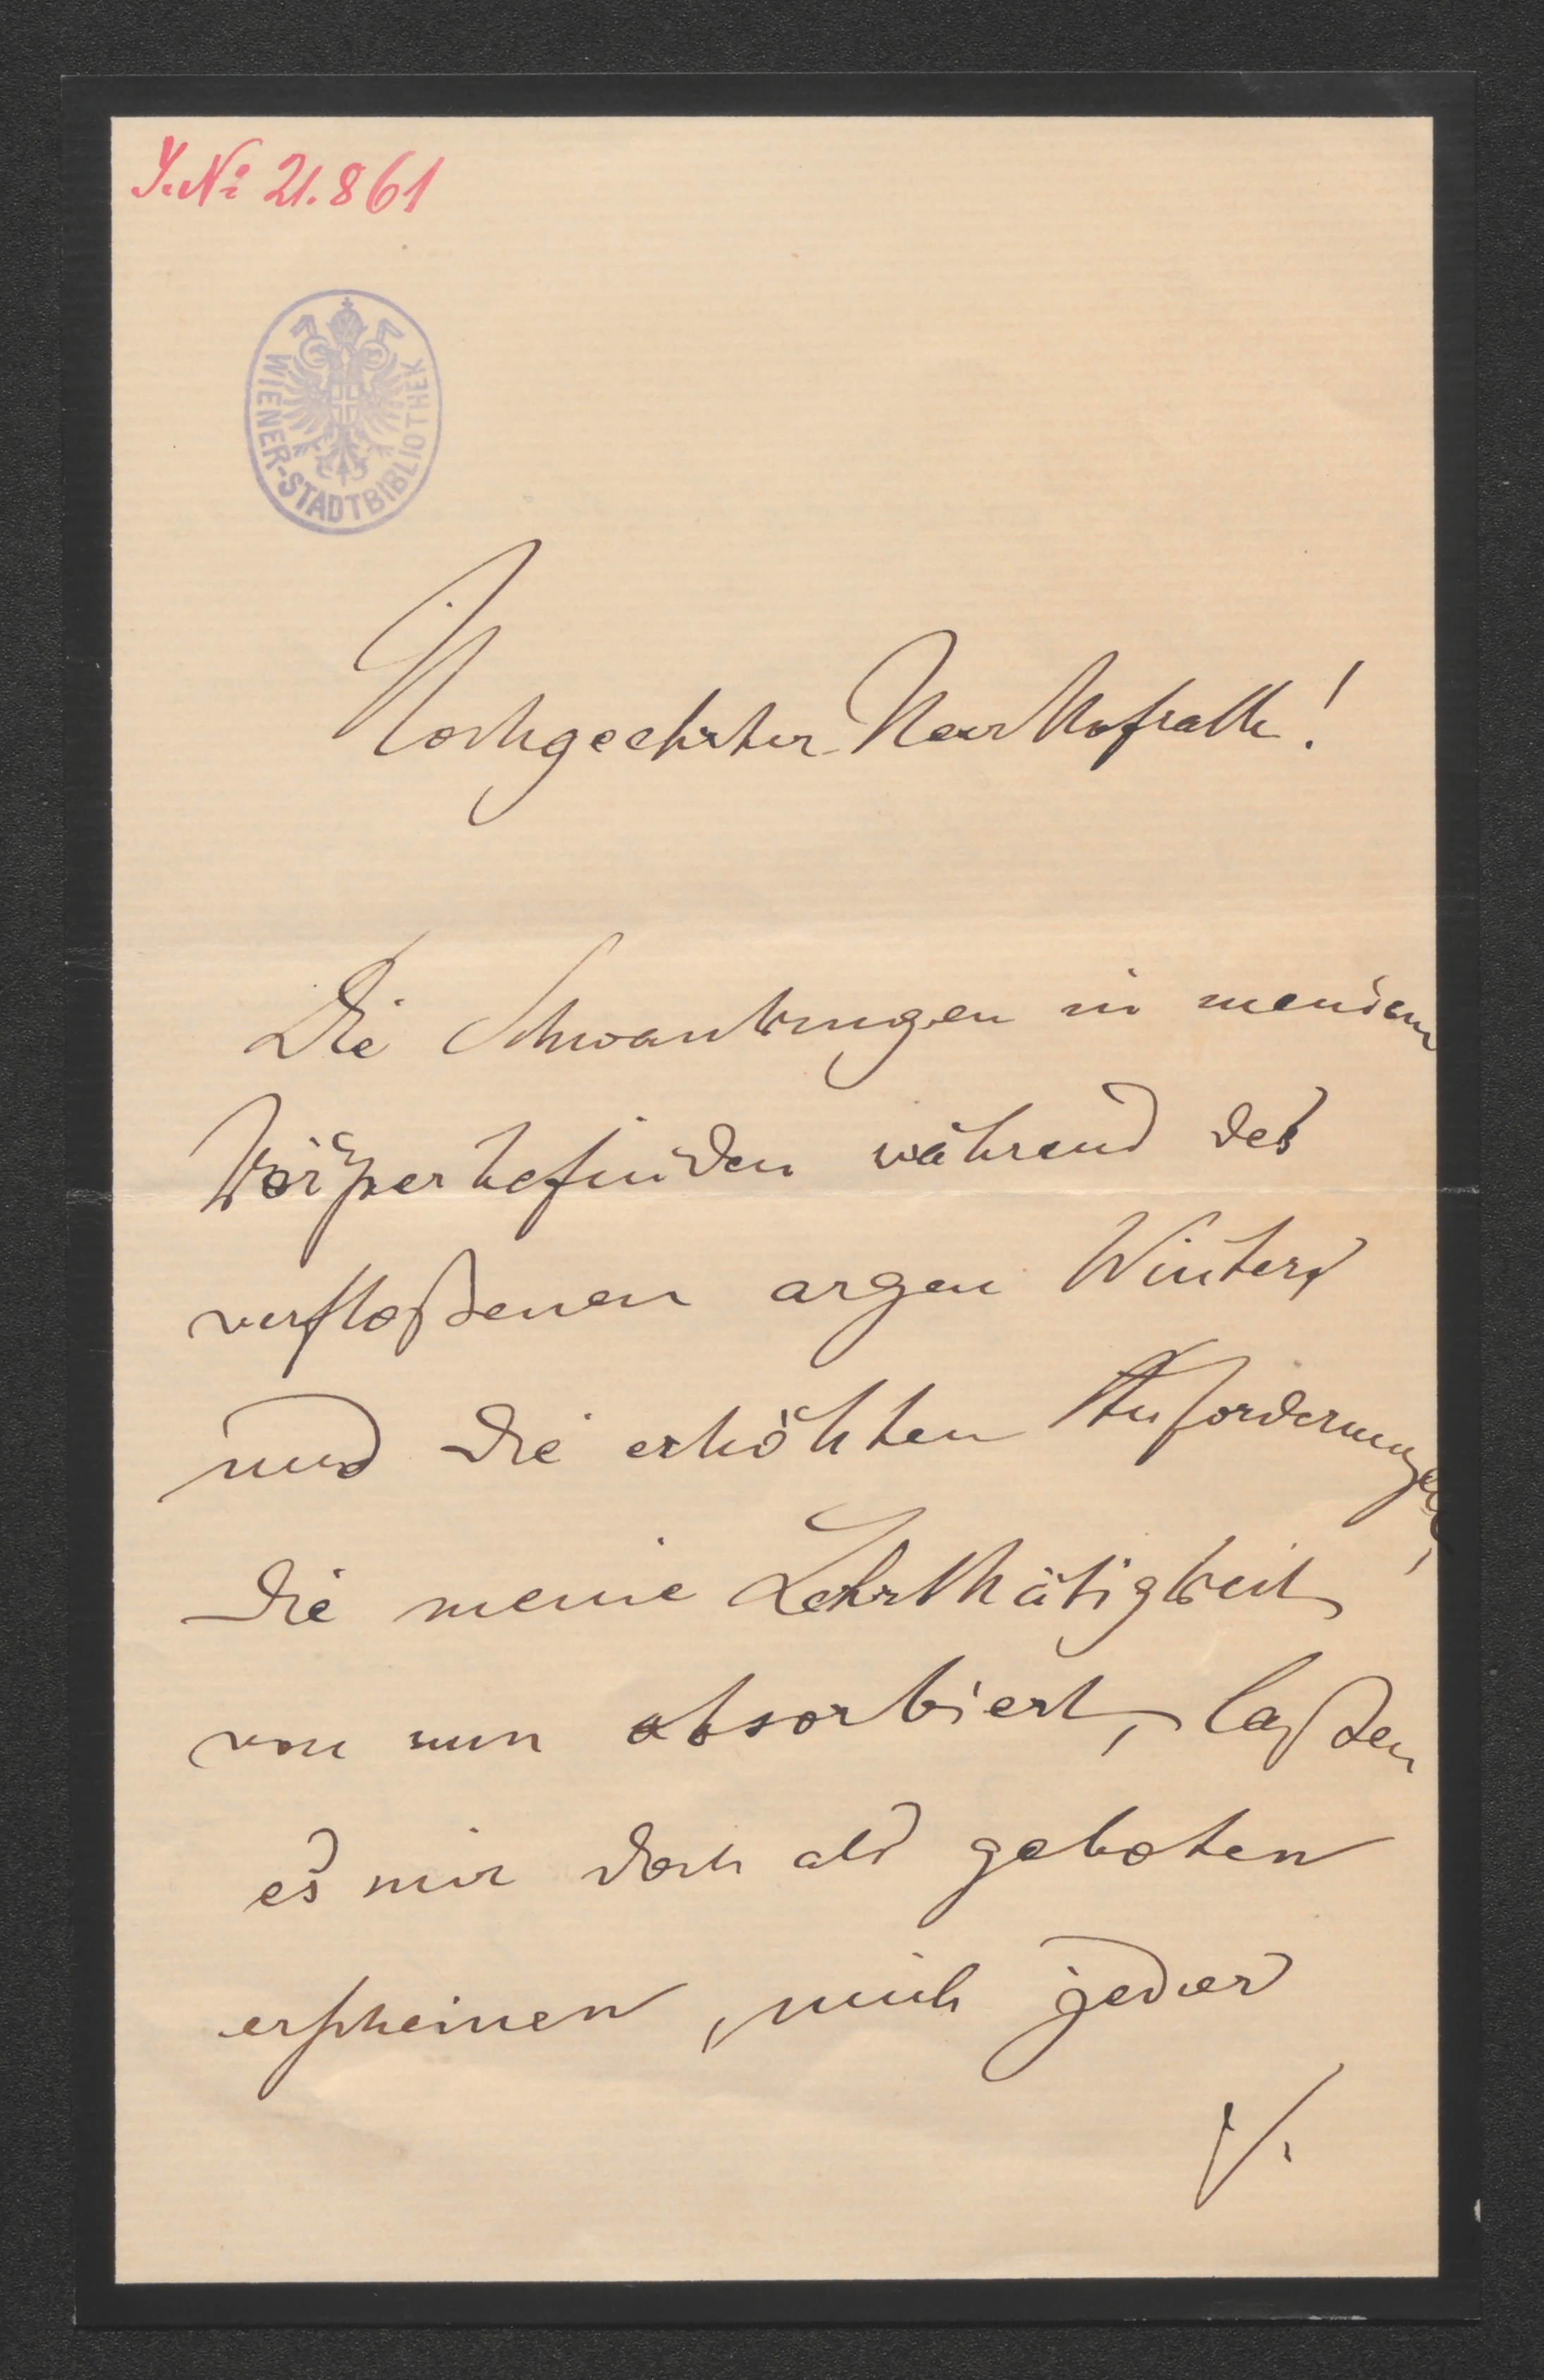 J.No 21.861
WIENER-STADTBIBLIOTHEK
Hochgeehrter Herr Hofrath!
Die Schwankungen in meinem
Körperbefinden während des
verfloßenen argen Winters
und die erhöhten Anforderungen,
die meine Lehrthätigkeit
von nun absorbiert, laßen
es mir doch als geboten
erscheinen, mich jeder